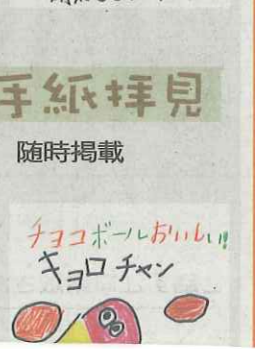 手紙拝見
随時掲載
チョコボールおいしい!!
キョロチャン